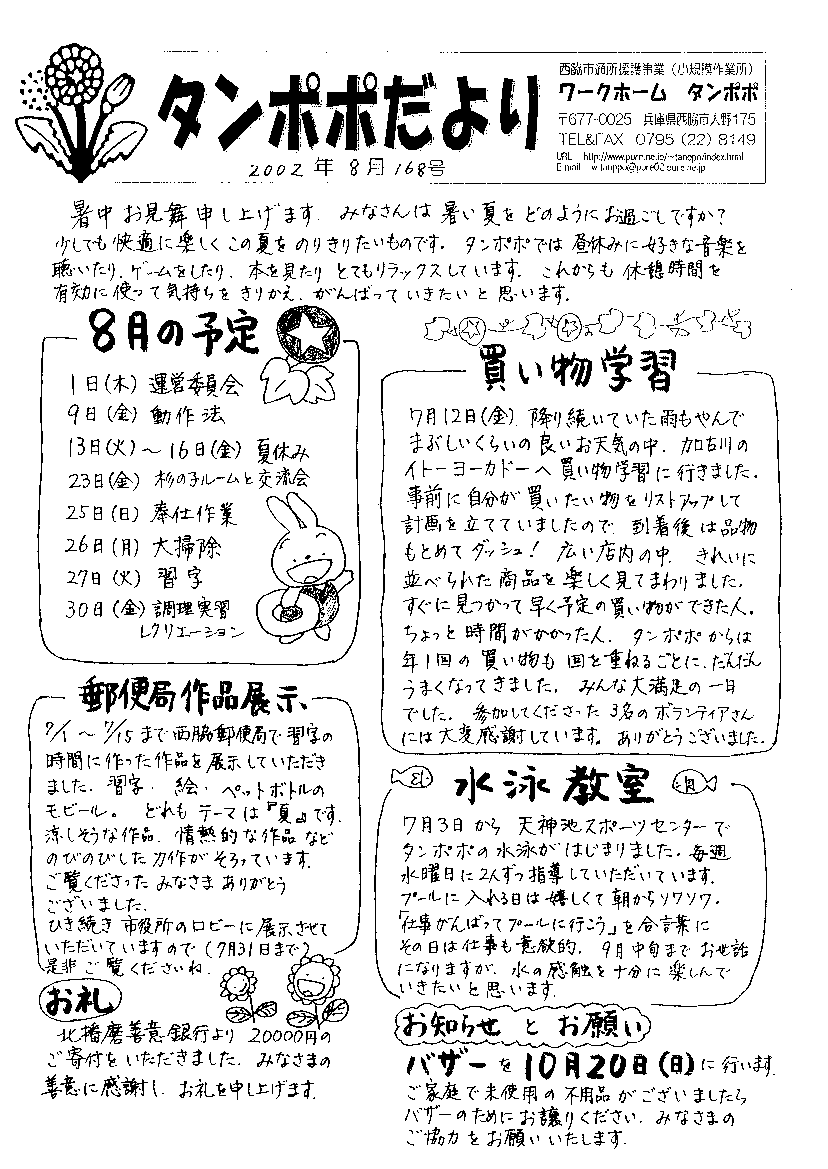 タンポポだより
2002年8月168号
西脇市通所援護事業（小規模作業所）
ワークホーム タンポポ
〒677-0025 兵庫県西脇市人野175
TEL&FAX 0795（22）8149
URL
E-mail
暑中お見舞申し上げます。みなさんは暑い夏をどのようにお過ごしですか？
少しでも快適に楽しくこの夏をのりきりたいものです。タンポポでは昼休みに好きな音楽を
聴いたり、ゲームをしたり、本を見たりとてもリラックスしています。これからも休憩時間を
有効に使って気持ちをきりかえ、がんばっていきたいと思います。
8月の予定
1日(木) 運営委員会
9日(金) 動作法
13日(火)～16日(金) 夏休み
23日(金) 杉の子ルームと交流会
25日(日) 奉仕作業
26日(月) 大掃除
27日(火) 習字
30日(金) 調理実習
レクリエーション
郵便局作品展示
7/1～7/15まで西脇郵便局で習字の
時間に作った作品を展示していただき
ました。習字・絵・ペットボトルの
モビール。どれもテーマは『夏』です。
涼しそうな作品、情熱的な作品など
のびのびした力作がそろっています。
ご覧くださったみなさまありがとう
ございました。
ひき続き市役所のロビーに展示させて
いただいていますので(7月31日まで)
是非ご覧くださいね。
お礼
北播磨善意銀行より20000円の
ご寄付をいただきました。みなさまの
善意に感謝し、お礼を申し上げます。
買い物学習
7月12日(金)、降り続いていた雨もやんで
まぶしいくらいの良いお天気の中、加古川の
イトーヨーカドーへ買い物学習に行きました。
事前に自分が買いたい物をリストアップして
計画を立てていましたので、到着後は品物
もとめてダッシュ！広い店内の中、きれいに
並べられた商品を楽しく見てまわりました。
すぐに見つかって早く予定の買い物ができた人。
ちょっと時間がかかった人。タンポポからは
年1回の買い物も回を重ねるごとに、だんだん
うまくなってきました。みんな大満足の一日
でした。参加してくださった3名のボランティアさん
には大変感謝しています。ありがとうございました。
水泳教室
7月3日から天神池スポーツセンターで
タンポポの水泳がはじまりました。毎週
水曜日に2人ずつ指導していただいています。
プールに入れる日は嬉しくて朝からソワソワ。
「仕事がんばってプールに行こう」を合言葉に
その日は仕事も意欲的。9月中旬までお世話
になりますが、水の感触を十分に楽しんで
いきたいと思います。
お知らせとお願い
バザーを10月20日(日)に行います。
ご家庭で未使用の不用品がございましたら
バザーのためにお譲りください。みなさまの
ご協力をお願いいたします。